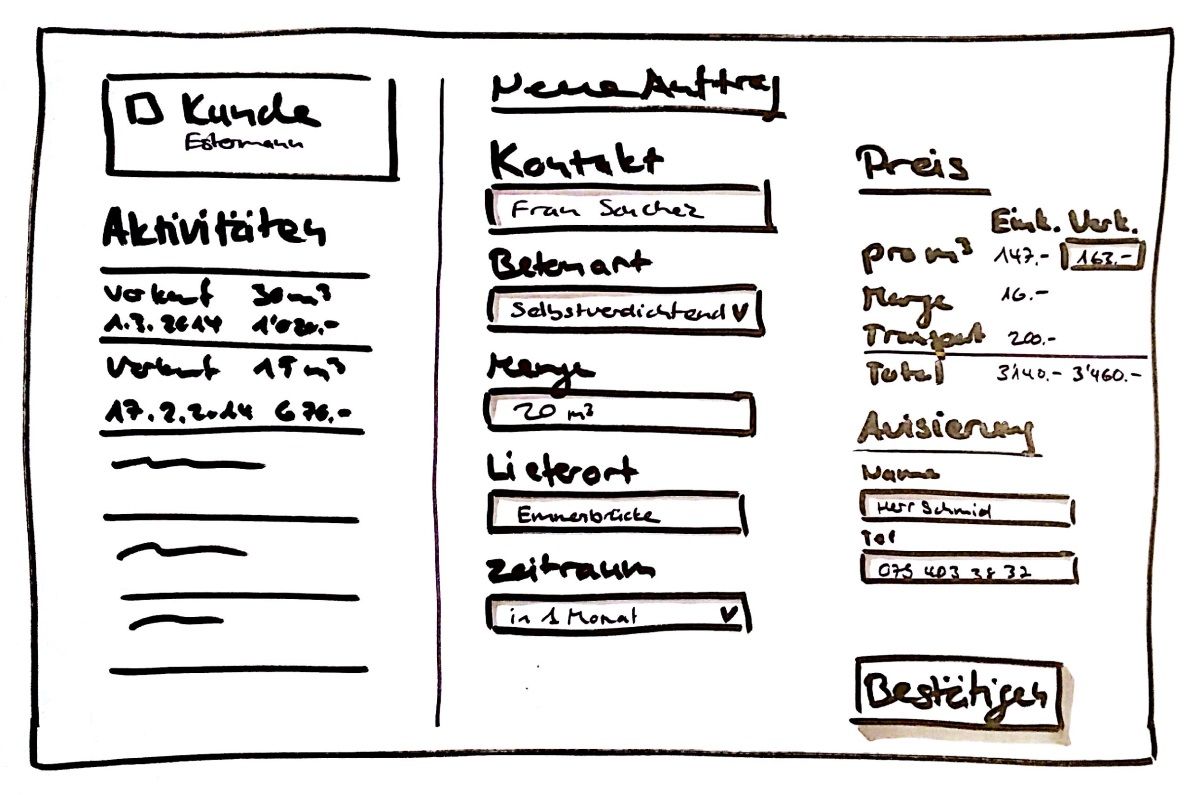 Kunde
Estermann
Aktivitäten
Verkauf 30 m³
1.3.2014 1'020.-
Verkauf 19 m³
17.2.2014 676.-
Neue Auftrag
Kontakt
Frau Sanchez
Betonart
Selbstverdichtend
Menge
20 m³
Lieferort
Emmenbrücke
Zeitraum
in 1 Monat
Preis
Eink. Verk.
pro m³ 147.- 163.-
Marge 16.-
Transport 200.-
Total 3'140.- 3'460.-
Avisierung
Name
Herr Schmid
Tel
079 403 38 32
Bestätigen